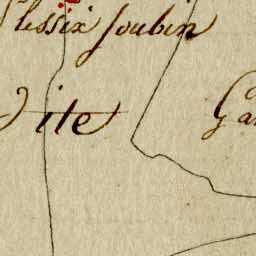 Plessix Joubin
ite
Ga